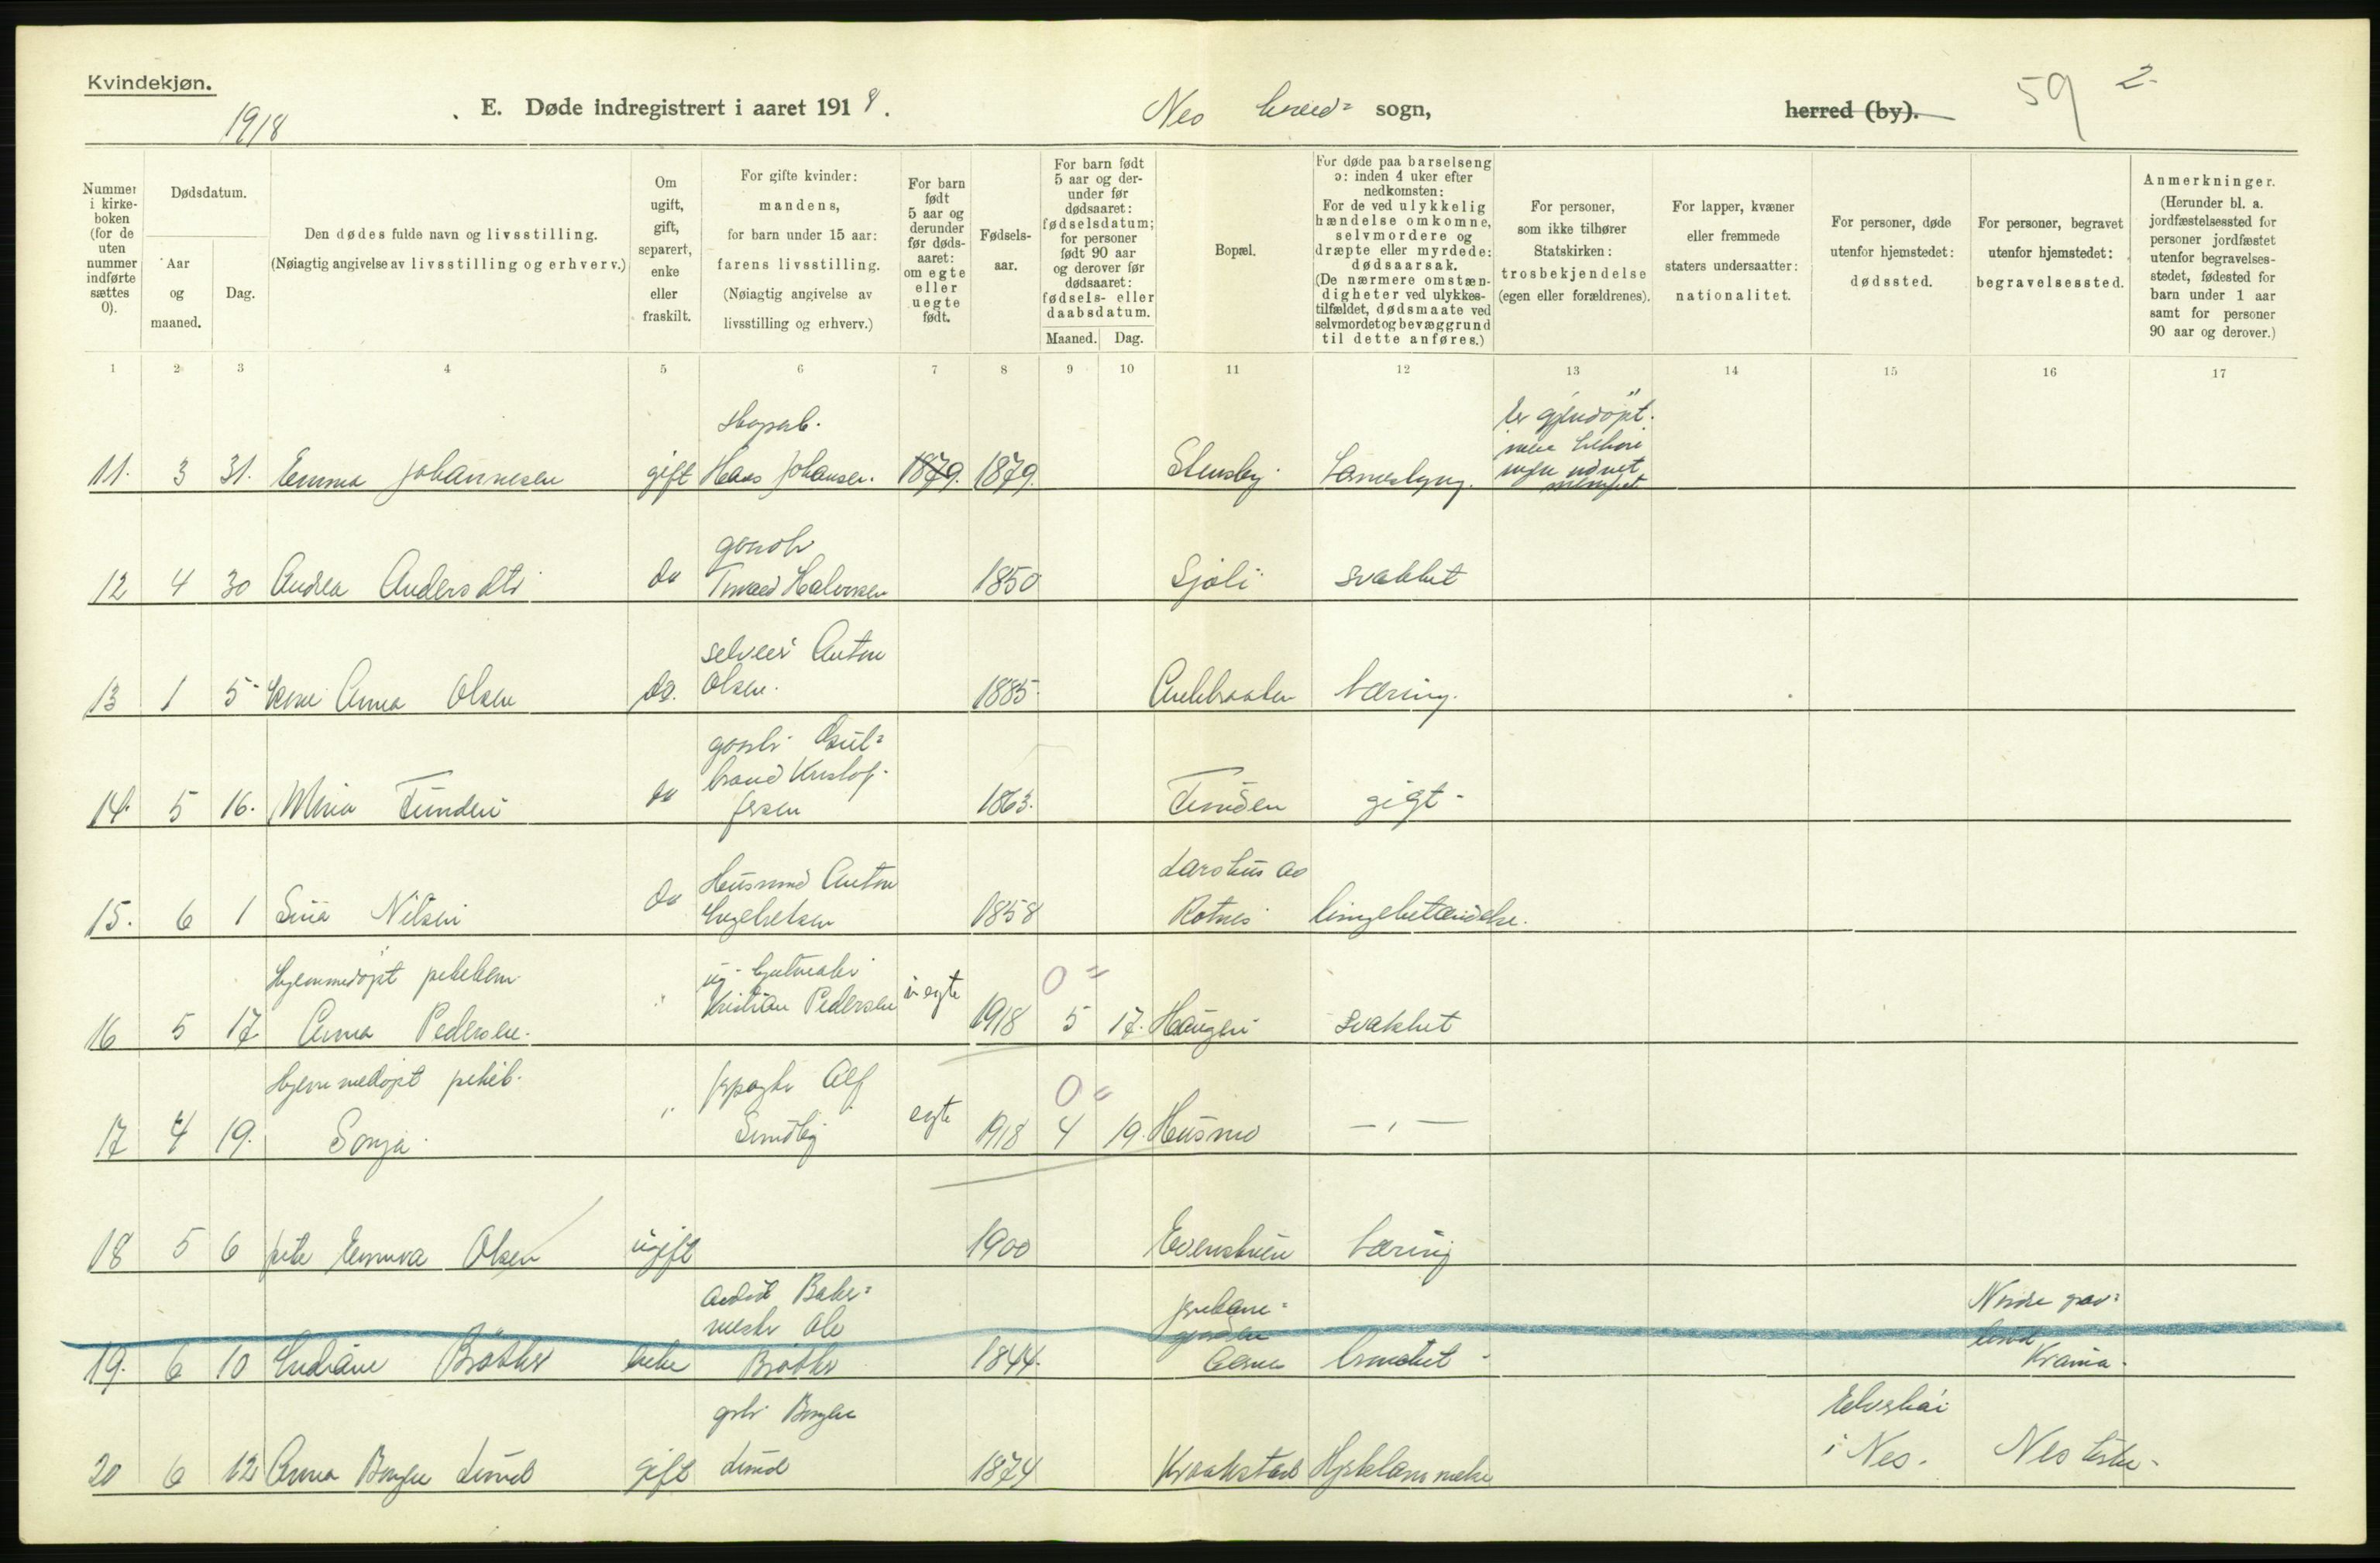 Kvindekjøn.
1918
E. Døde indregistrert i aaret 1918.
Nes hoved= sogn,
herred (by).
59 2
Nummer i kirkeboken (for de uten nummer indførte sættes 0).
Dødsdatum.
Aar og maaned.
Dag.
Den dødes fulde navn og livsstilling.
(Nøiagtig angivelse av livsstilling og erhverv.)
Om ugift, gift, separert, enke eller fraskilt.
For gifte kvinder: mandens, for barn under 15 aar: farens livsstilling. (Nøiagtig angivelse av livsstilling og erhverv.)
For barn født 5 aar og derunder før dødsaaret: om egte eller uegte født.
Fødselsaar.
For barn født 5 aar og derunder før dødsaaret: fødselsdatum; for personer født 90 aar og derover før dødsaaret: fødsels- eller daabsdatum.
Maaned. Dag.
Bopæl.
For døde paa barselseng ɔ: inden 4 uker efter nedkomsten: For de ved ulykkelig hændelse omkomne, selvmordere og dræpte eller myrdede: dødsaarsak. (De nærmere omstændigheter ved ulykkestilfældet, dødsmaate ved selvmordet og bevæggrund til dette anføres.)
For personer, som ikke tilhører Statskirken: trosbekjendelse (egen eller forældrenes).
For lapper, kvæner eller fremmede staters undersaatter: nationalitet.
For personer, døde utenfor hjemstedet: dødssted.
For personer, begravet utenfor hjemstedet: begravelsessted.
Anmerkninger. (Herunder bl. a. jordfæstelsessted for personer jordfæstet utenfor begravelsesstedet, fødested for barn under 1 aar samt for personer 90 aar og derover.)
1 2 3 4 5 6 7 8 9 10 11 12 13 14 15 16 17
11. 3 31. Emma Johannesen gift Hans Johansen. 1879. 1879. Stensby
Er gjendøpt.
12 4 30 Andrea Andersdtr do Halvorsen 1850 Sjøli svakhet
13 1 5 Anna Olsen do. selveier Anton Olsen. 1885 tæring.
14. 5 16. Mina Tunden do gaardbr. Gulbrand Kristoffersen 1863. Tunden gigt
15. 6 1 Nilsen do Husmand Anton Engebretsen 1858 Larshus as Rotnes lungebetændelse.
16 5 17 Hjemmedøpt pikebarn Anna Pedersen. " Kristian Pedersen uegte 1918 5 17. Haugen svakhet
0 =
17 4 19. Hjemmedøpt pikeb. Sonja. " Alf Sundby egte 1918 4 19. Husmo — " —
0 =
18 5 6 pike Emma Olsen ugift 1900 tæring
19. 6 10 enke Ole 1844. Aarnes Krania.
20 6 12 Anna Lund gift Lund 1874 Kraakstad i Nes. Nes kirke